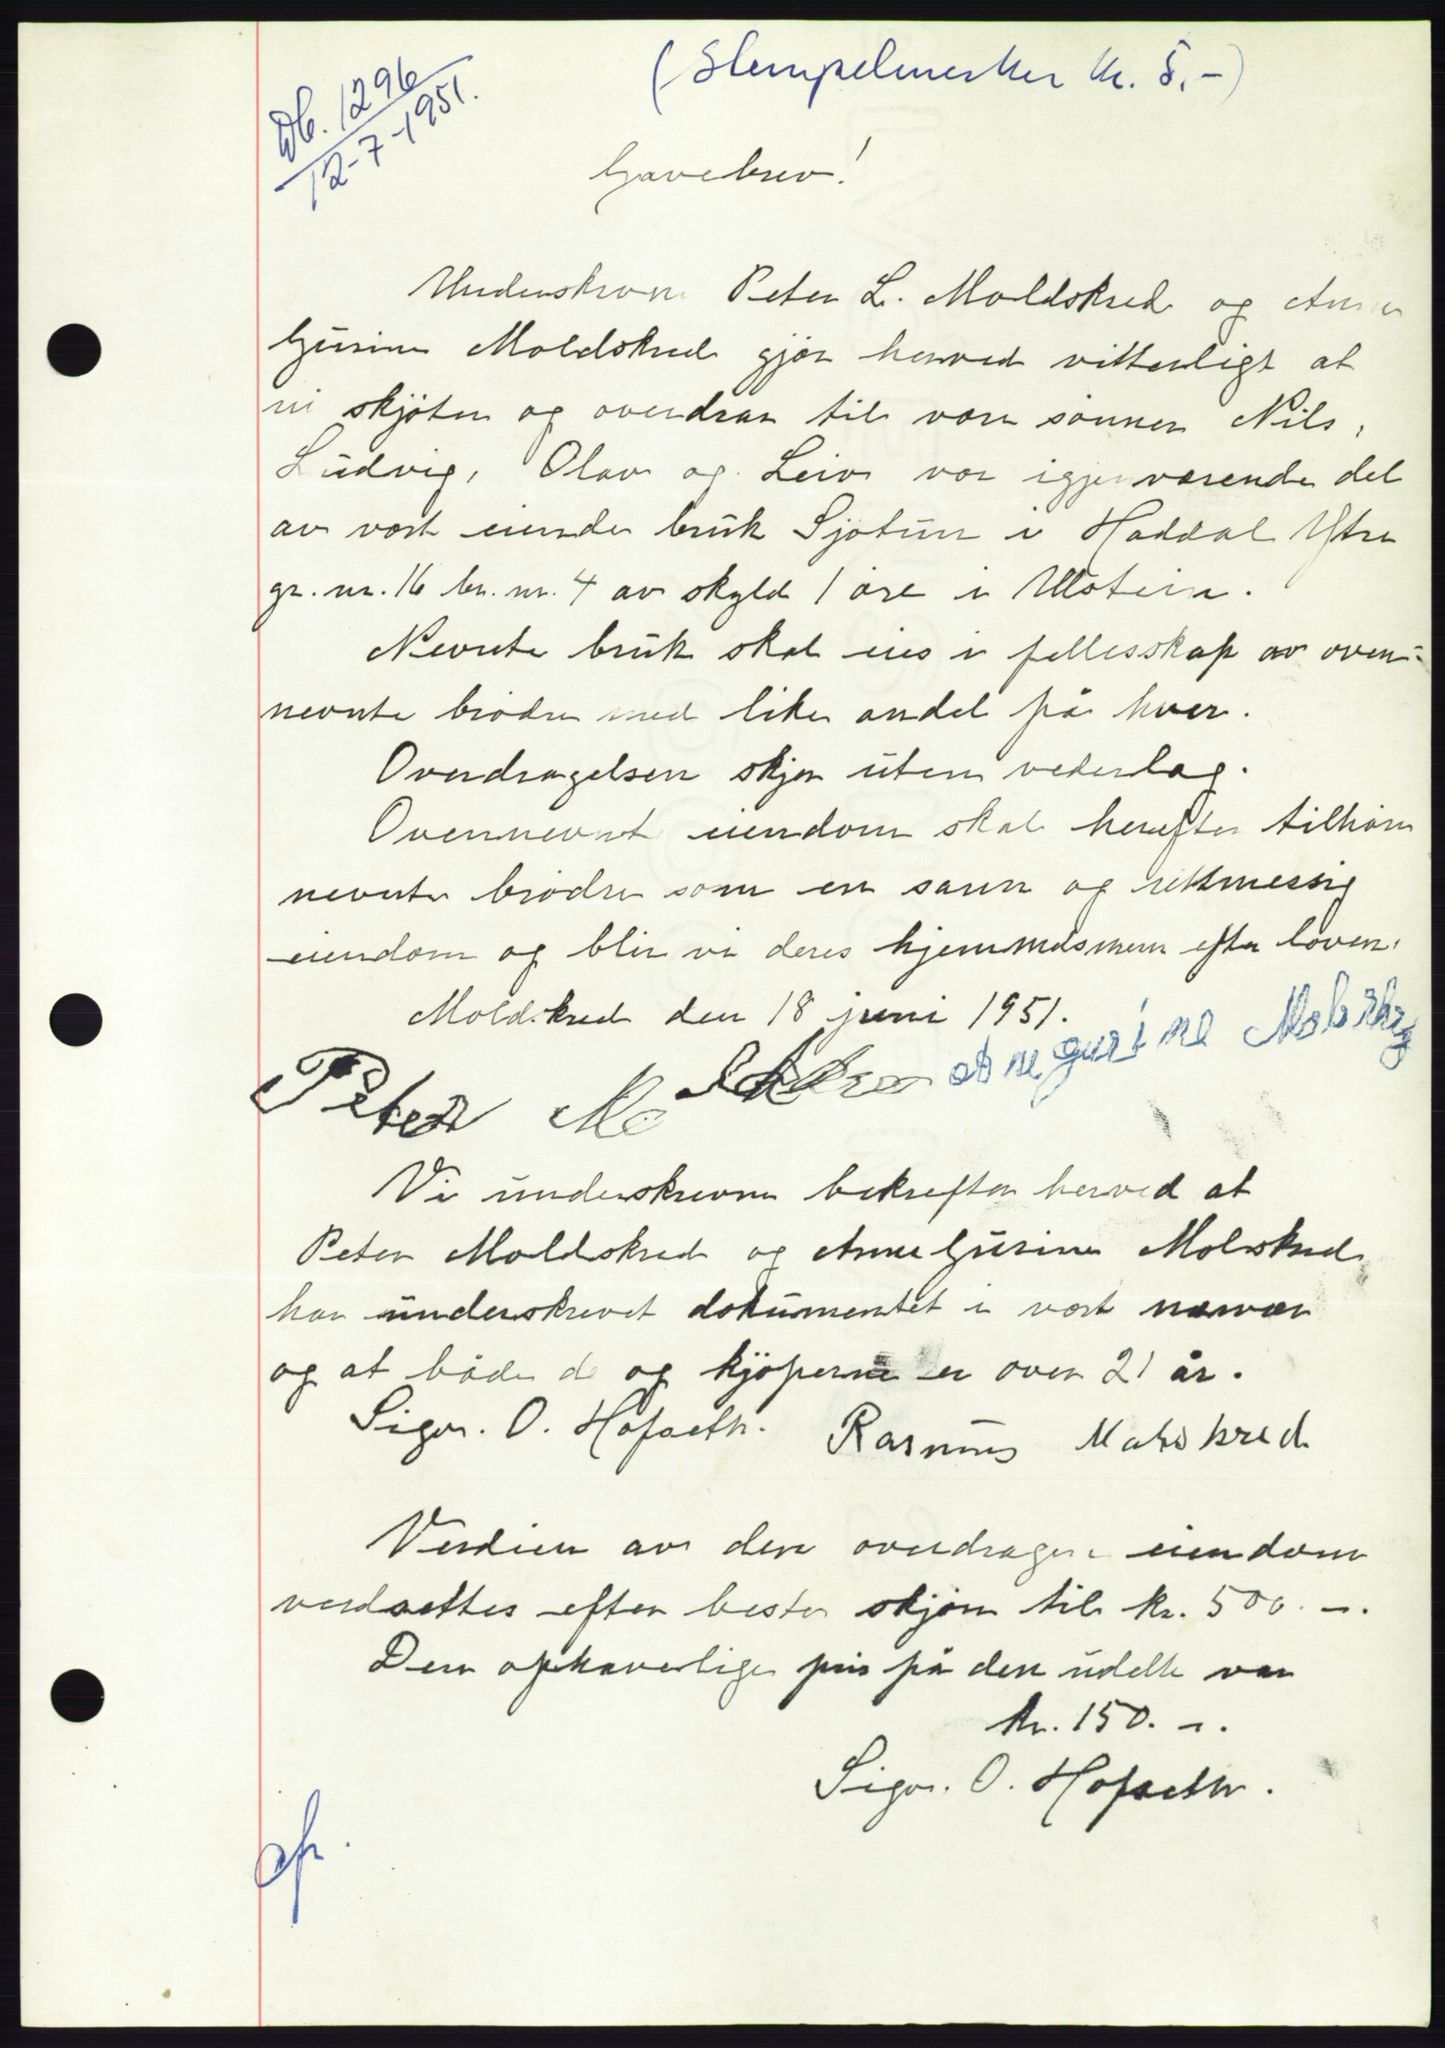 Db. 1296
12-7-1951.
(Stempelmerker kr. 5.-)
Gavebrev!
Underskrevne Peter L. Moldskred og Anne
Gurine Moldskred gjør herved vitterligt at
vi skjøter og overdrar til våre sønner Nils,
Ludvig, Olav og Leiv vor igjenværende del
av vort eiende bruk Sjøtun i Haddal Ytre
gr. nr. 16 br. nr. 4 av skyld 1 øre i Ulstein.
Nevnte bruk skal eies i fellesskap av oven-
nevnte brødre med like andel på hver.
Overdragelsen skjer uten vederlag.
Ovennevnt eiendom skal herefter tilhøre
nevnte brødre som en sann og rettmessig
eiendom og blir vi deres hjemmelsmenn efter loven.
Moldskred den 18 juni 1951.
Peter Mo
Vi underskrevne bekrefter herved at
Peter Moldskred og Anne Gurine Molskred
har underskrevet dokumentet i vort nærvær
og at både d og kjøperne er over 21 år.
Sigv. O. Hofseth. Rasmus Molskred
Verdien av den overdragne eiendom
verdsettes efter beste skjønn til kr. 500.-.
Den ophavelige pris på den udelte var
kr. 150.-.
Sigv. O. Hofseth.